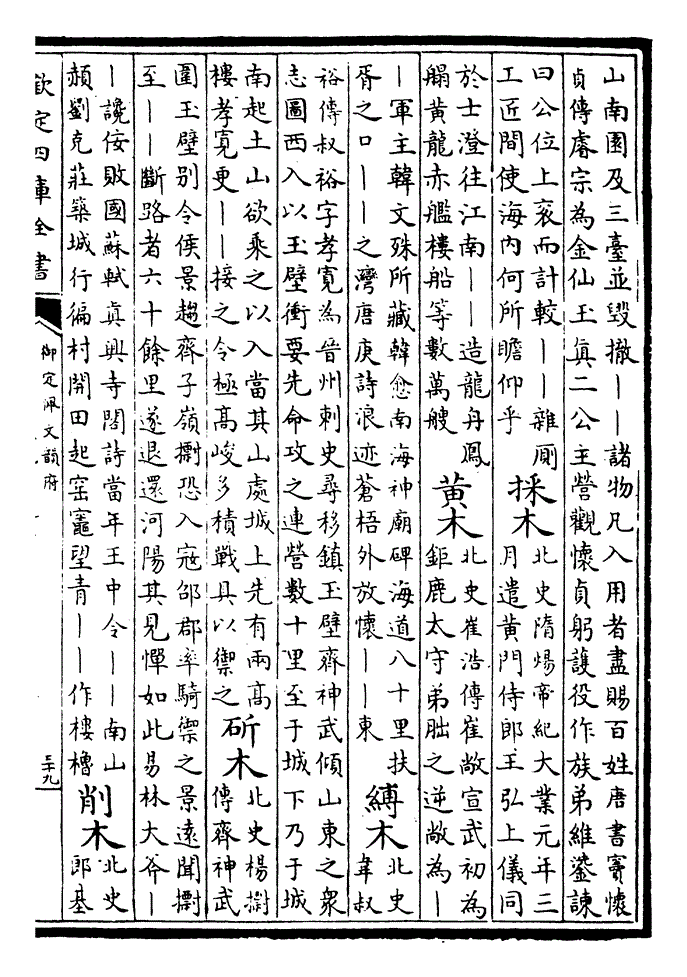 山南園及三臺並毀撤——諸物凡入用者盡賜百姓唐書竇懷
貞傳睿宗為金仙玉真二公主營觀懷貞躬護役作族弟維鍌諫
曰公位上衮而計較——雜廁
工匠間使海内何所瞻仰乎
採木
北史隋煬帝紀大業元年三
月遣黄門侍郎王弘上儀同
於士澄往江南——造龍舟鳳
䑽黄龍赤艦樓船等數萬艘
黄木
北史崔浩傳崔敞宣武初為
鉅鹿太守弟朏之逆敞為—
—軍主韓文殊所藏韓愈南海神廟碑海道八十里扶
胥之口——之灣唐庚詩浪迹蒼梧外放懷——東
縛木
北史
韋叔
裕傳叔裕字孝寬為晉州刺史尋移鎮玉壁齊神武傾山東之衆
志圖西入以玉壁衝要先命攻之連營數十里至于城下乃于城
南起土山欲乘之以入當其山處城上先有兩高
樓孝寬更——接之令極高峻多積戰具以禦之
斫木
北史楊㩆
傳齊神武
圍玉壁別令侯景趨齊子嶺㩆恐入寇邵郡率騎禦之景遠聞㩆
至——斷路者六十餘里遂退還河陽其見憚如此易林大斧—
—讒佞敗國蘇軾真興寺閣詩當年王中令——南山
赬劉克莊築城行徧村開田起窑竈望青——作樓櫓
削木
北史
郎基
欽定四庫全書
御定佩文韻府
三十九